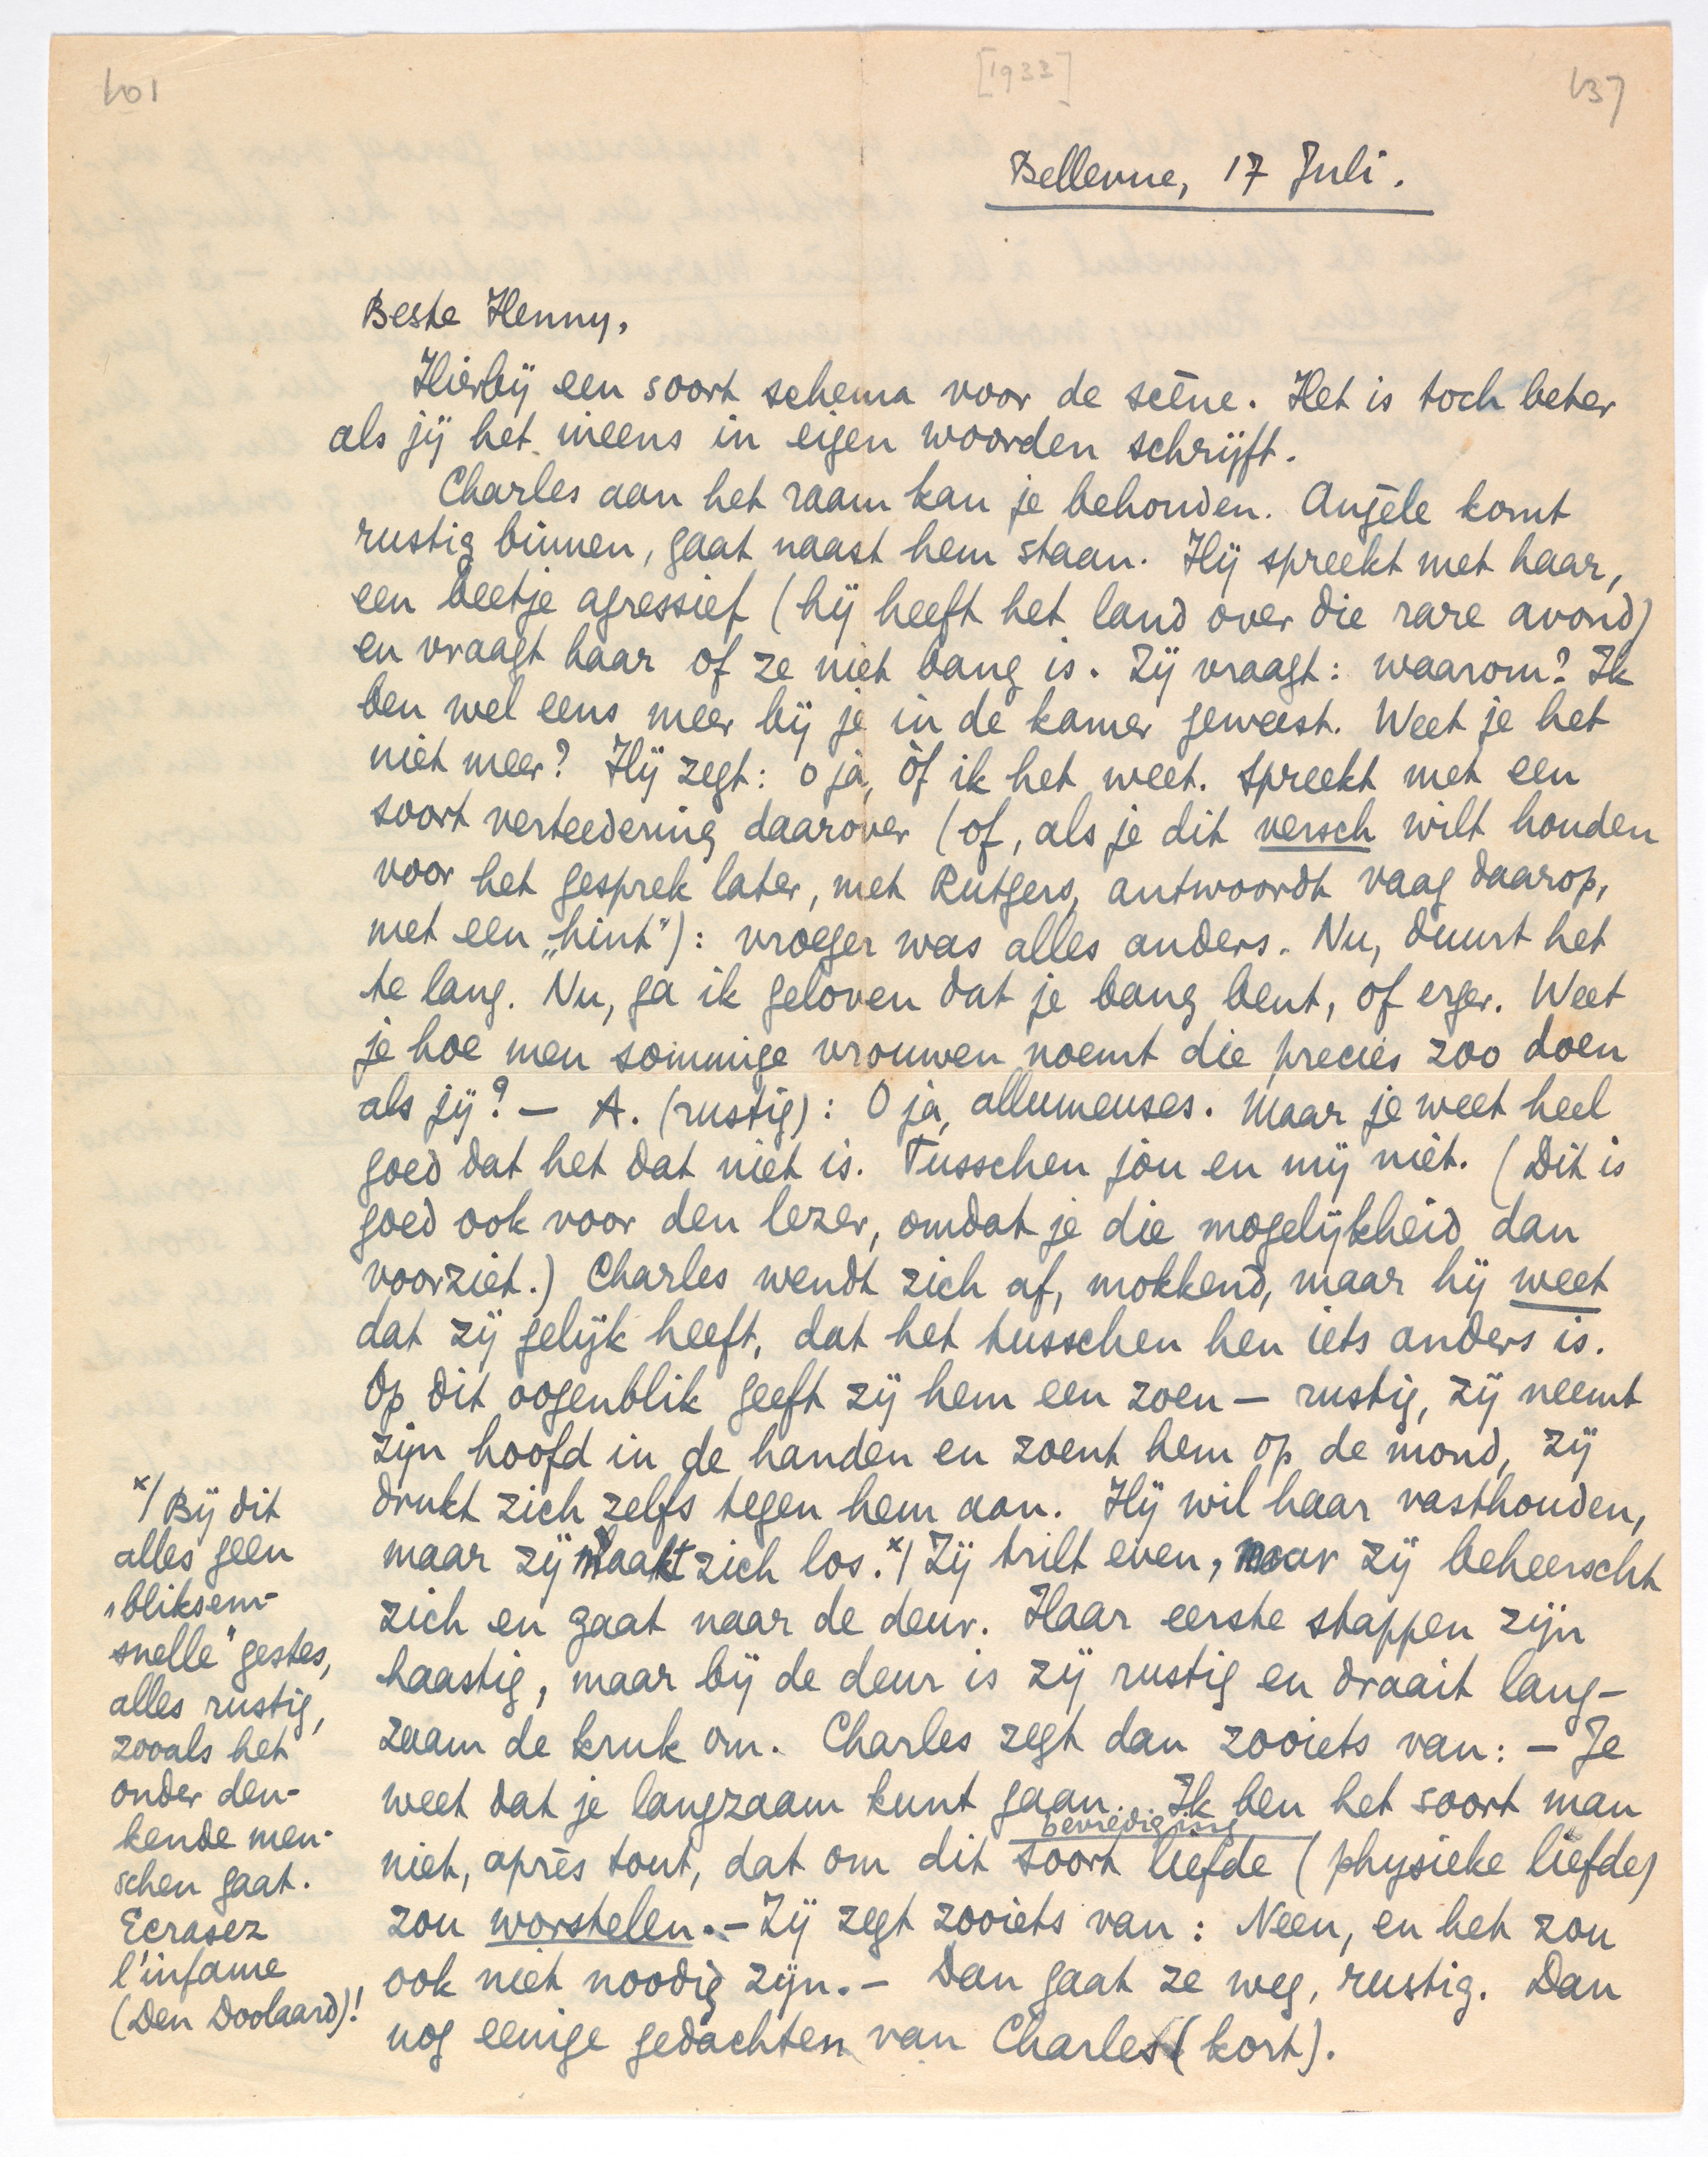 101
[1933]
137
Bellevue, 17 Juli.
Beste Henny,
Hierbij een soort schema voor de scène. Het is toch beter
als jij het ineens in eigen woorden schrijft.
Charles aan het raam kan je behouden. Angèle komt
rustig binnen, gaat naast hem staan. Hij spreekt met haar,
een beetje agressief (hij heeft het land over die rare avond)
en vraagt haar of ze niet bang is. Zij vraagt: waarom? Ik
ben wel eens meer bij je in de kamer geweest. Weet je het
niet meer? Hij zegt: o ja, òf ik het weet. spreekt met een
soort verteedering daarover (of, als je dit versch wilt houden
voor het gesprek later, met Rutgers, antwoordt vaag daarop,
met een „hint"): vroeger was alles anders. Nu, duurt het
te lang. Nu, ga ik geloven dat je bang bent, of erger. Weet
je hoe men sommige vrouwen noemt die precies zoo doen
als jij? — A. (rustig): O ja, allumeuses. Maar je weet heel
goed dat het dat niet is. Tusschen jou en mij niet. (Dit is
goed ook voor den lezer, omdat je die mogelijkheid dan
voorziet.) Charles wendt zich af, mokkend, maar hij weet
dat zij gelijk heeft, dat het tusschen hen iets anders is.
Op dit oogenblik geeft zij hem een zoen — rustig, zij neemt
zijn hoofd in de handen en zoent hem op de mond, zij
drukt zich zelfs tegen hem aan. Hij wil haar vasthouden,
maar zij maakt zich los. x/ Zij trilt even, maar zij beheerscht
zich en gaat naar de deur. Haar eerste stappen zijn
haastig, maar bij de deur is zij rustig en draait lang-
zaam de kruk om. Charles zegt dan zooiets van: — Je
weet dat je langzaam kunt gaan. Ik ben het soort man
bevrediging
niet, après tout, dat om dit soort liefde (physieke liefde)
zou worstelen. — Zij zegt zooiets van: Neen, en het zou
ook niet noodig zijn. — Dan gaat ze weg, rustig. Dan
nog eenige gedachten van Charles (kort).
x/ Bij dit
alles geen
„bliksem-
snelle" gestes,
alles rustig,
zooals het
onder den-
kende men-
schen gaat.
Ecrasez
l'infame
(Den Doolaard)!